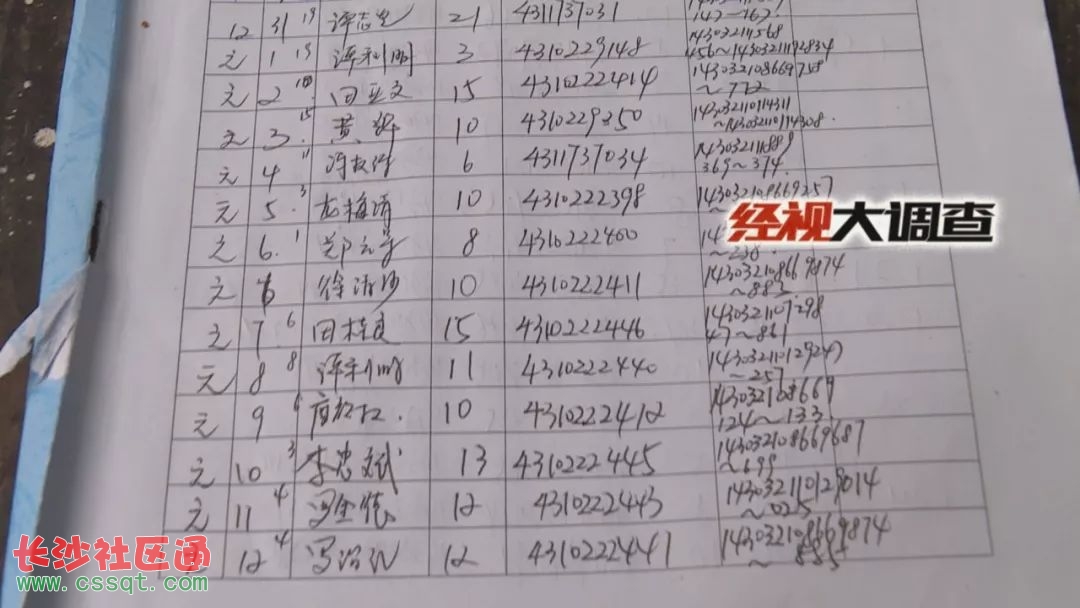 12 31 19 谭志先 21 4311737031
147~167.
元 1 19 谭利明 3 4310229148 14303211568
456~1430321192834
元 2 10 田亚文 15 4310222414 143032108669758
~772
元 3. 15 黄 10 4310229350 143032110114311
元 4 11 6 4311737034 14303211889
369~374.
元 5. 3 龙梅清 10 4310222398 143032108669257
元 6. 1 8 4310222400 14
~238.
元 6 徐 10 4310222411 143032108669874
~883.
元 7 6 田桂良 15 4310222446 1430321107298
47~861
元 8 8 谭利明 11 4310222440 143032110129247
~257
元 9 6 10 4310222412 143032108669
124~133
元 10 3 李忠斌 13 4310222445 143032108669687
~699
元 11 4 冯 12 4310222443 143032110129014
~025
12 4 12 4310222441 143032108669874
~885
经视大调查
长沙社区通
www.cssqt.com